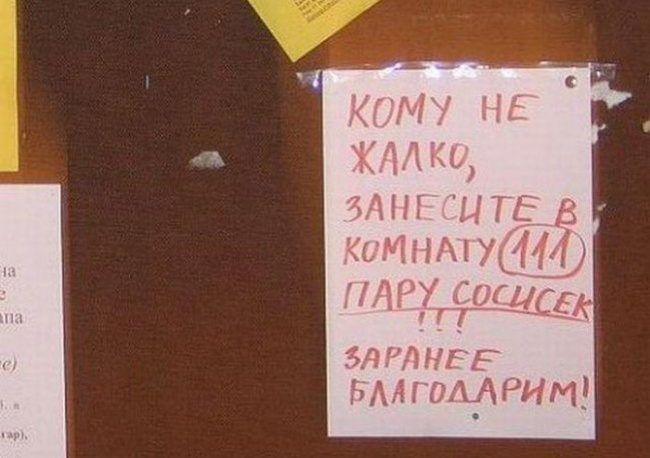 КОМУ НЕ
ЖАЛКО,
ЗАНЕСИТЕ В
КОМНАТУ 111
ПАРУ СОСИСЕК
!!!
ЗАРАНЕЕ
БЛАГОДАРИМ!
на
е
)